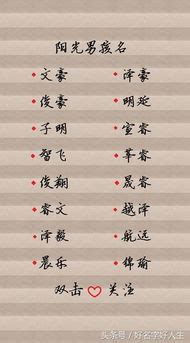 阳光男孩名
文豪 泽豪
俊豪 明延
子明 宣睿
智飞 莘睿
俊翔 晟睿
睿文 越泽
泽毅 航远
晨乐 锦瑜
双击 关注
头条号/好名字好人生